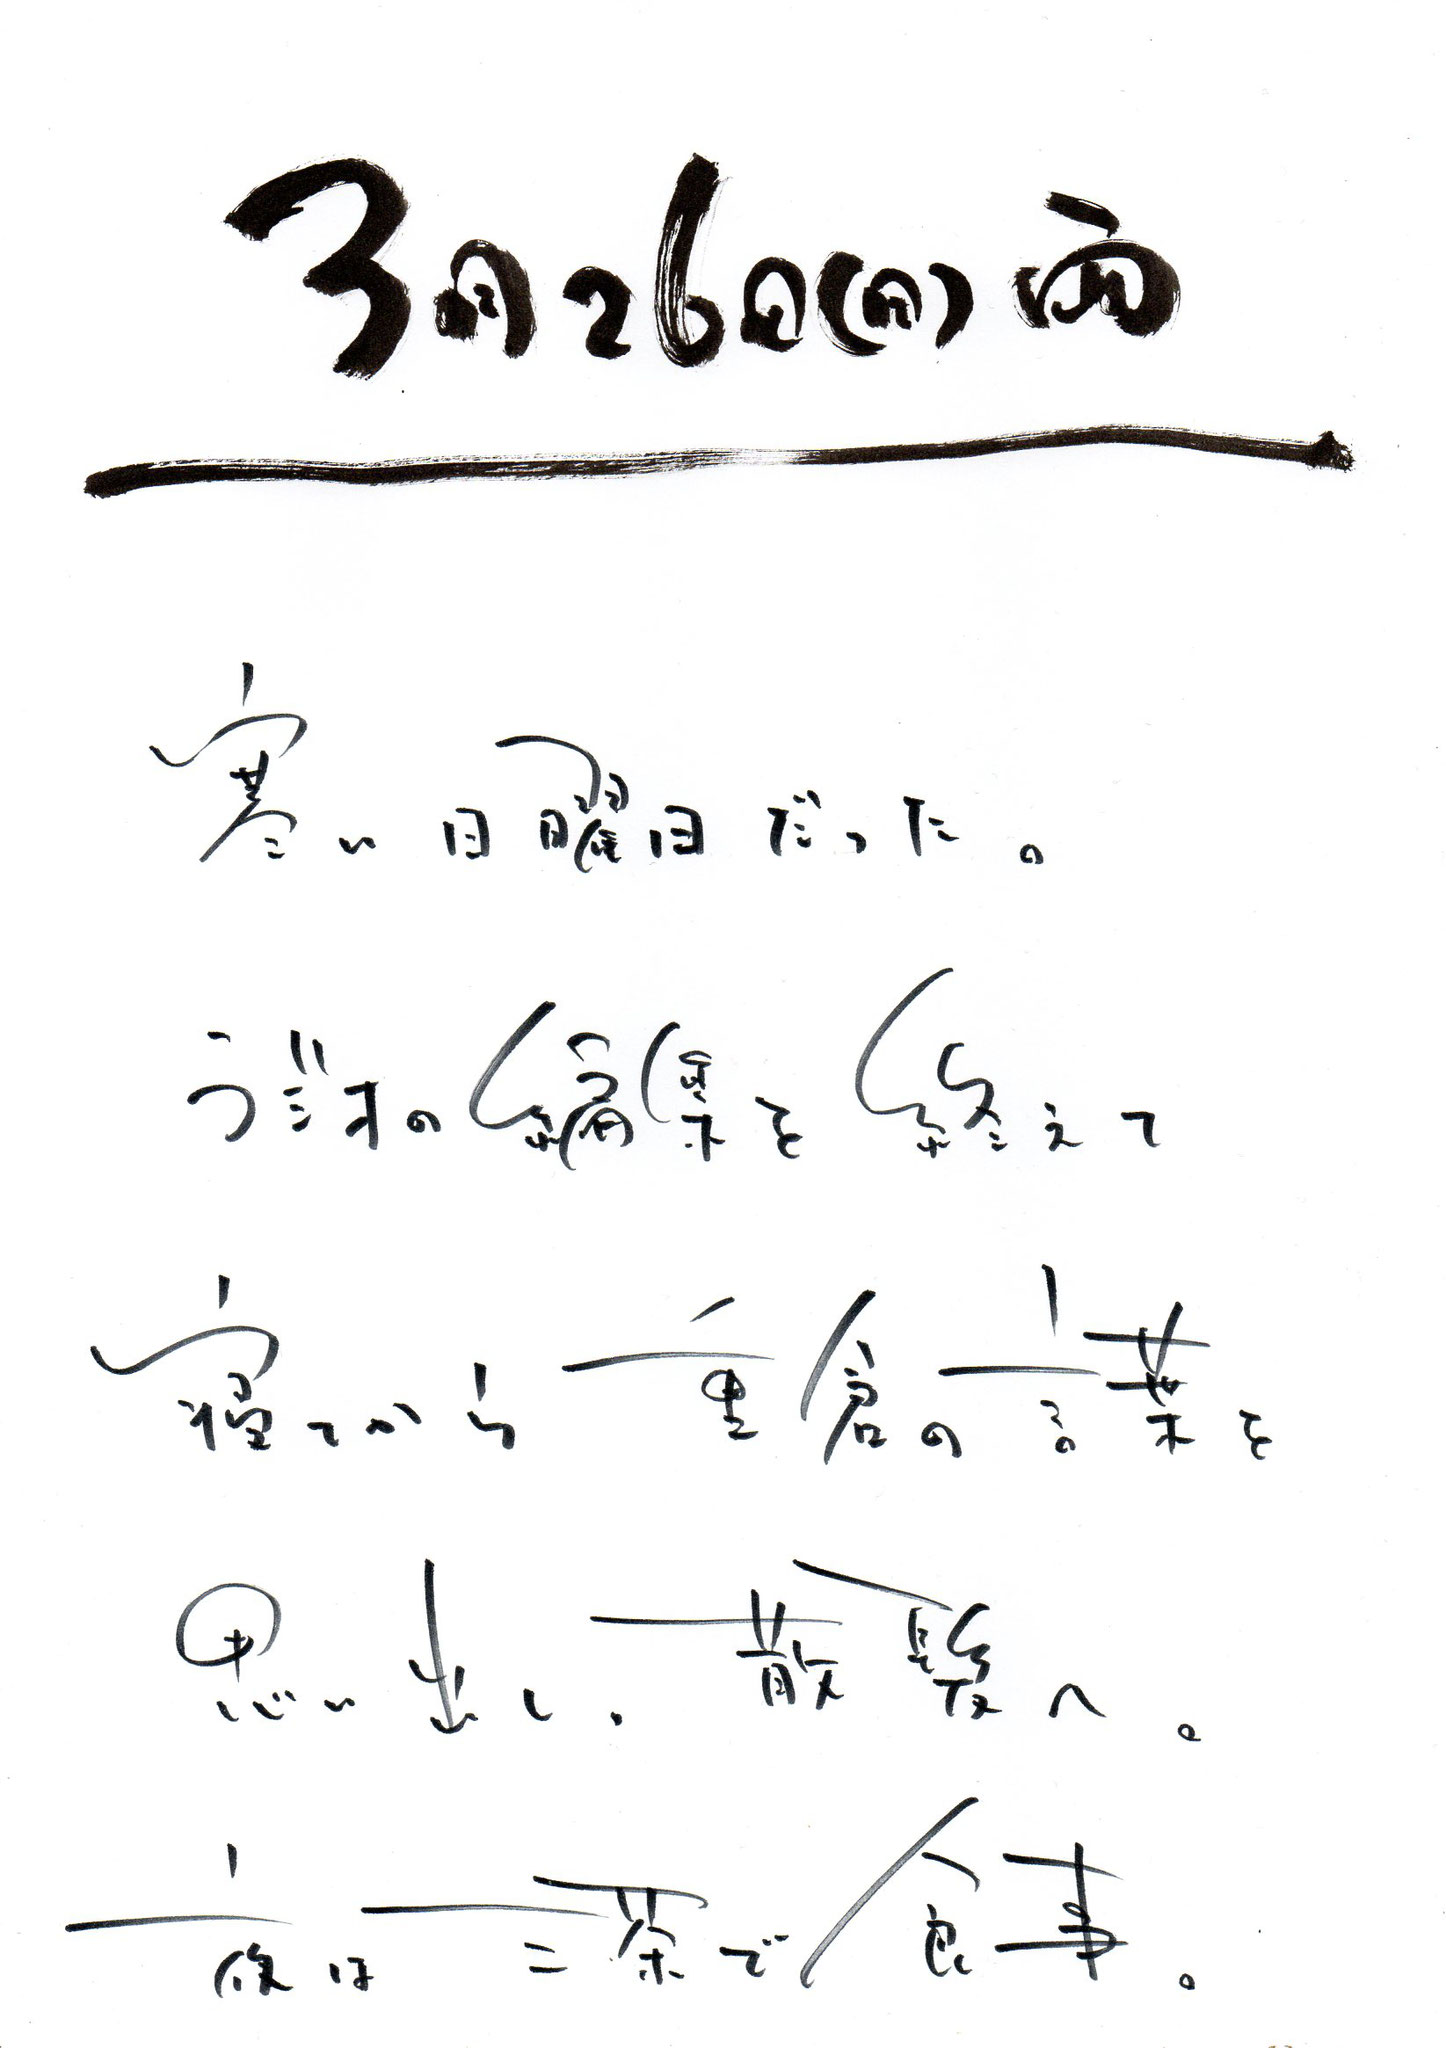 3月26日(日)雨
寒い日曜日だった。
ラジオの編集を終えて
寝てから重倉の言葉を
思い出し、散髪へ。
夜は三茶で食事。